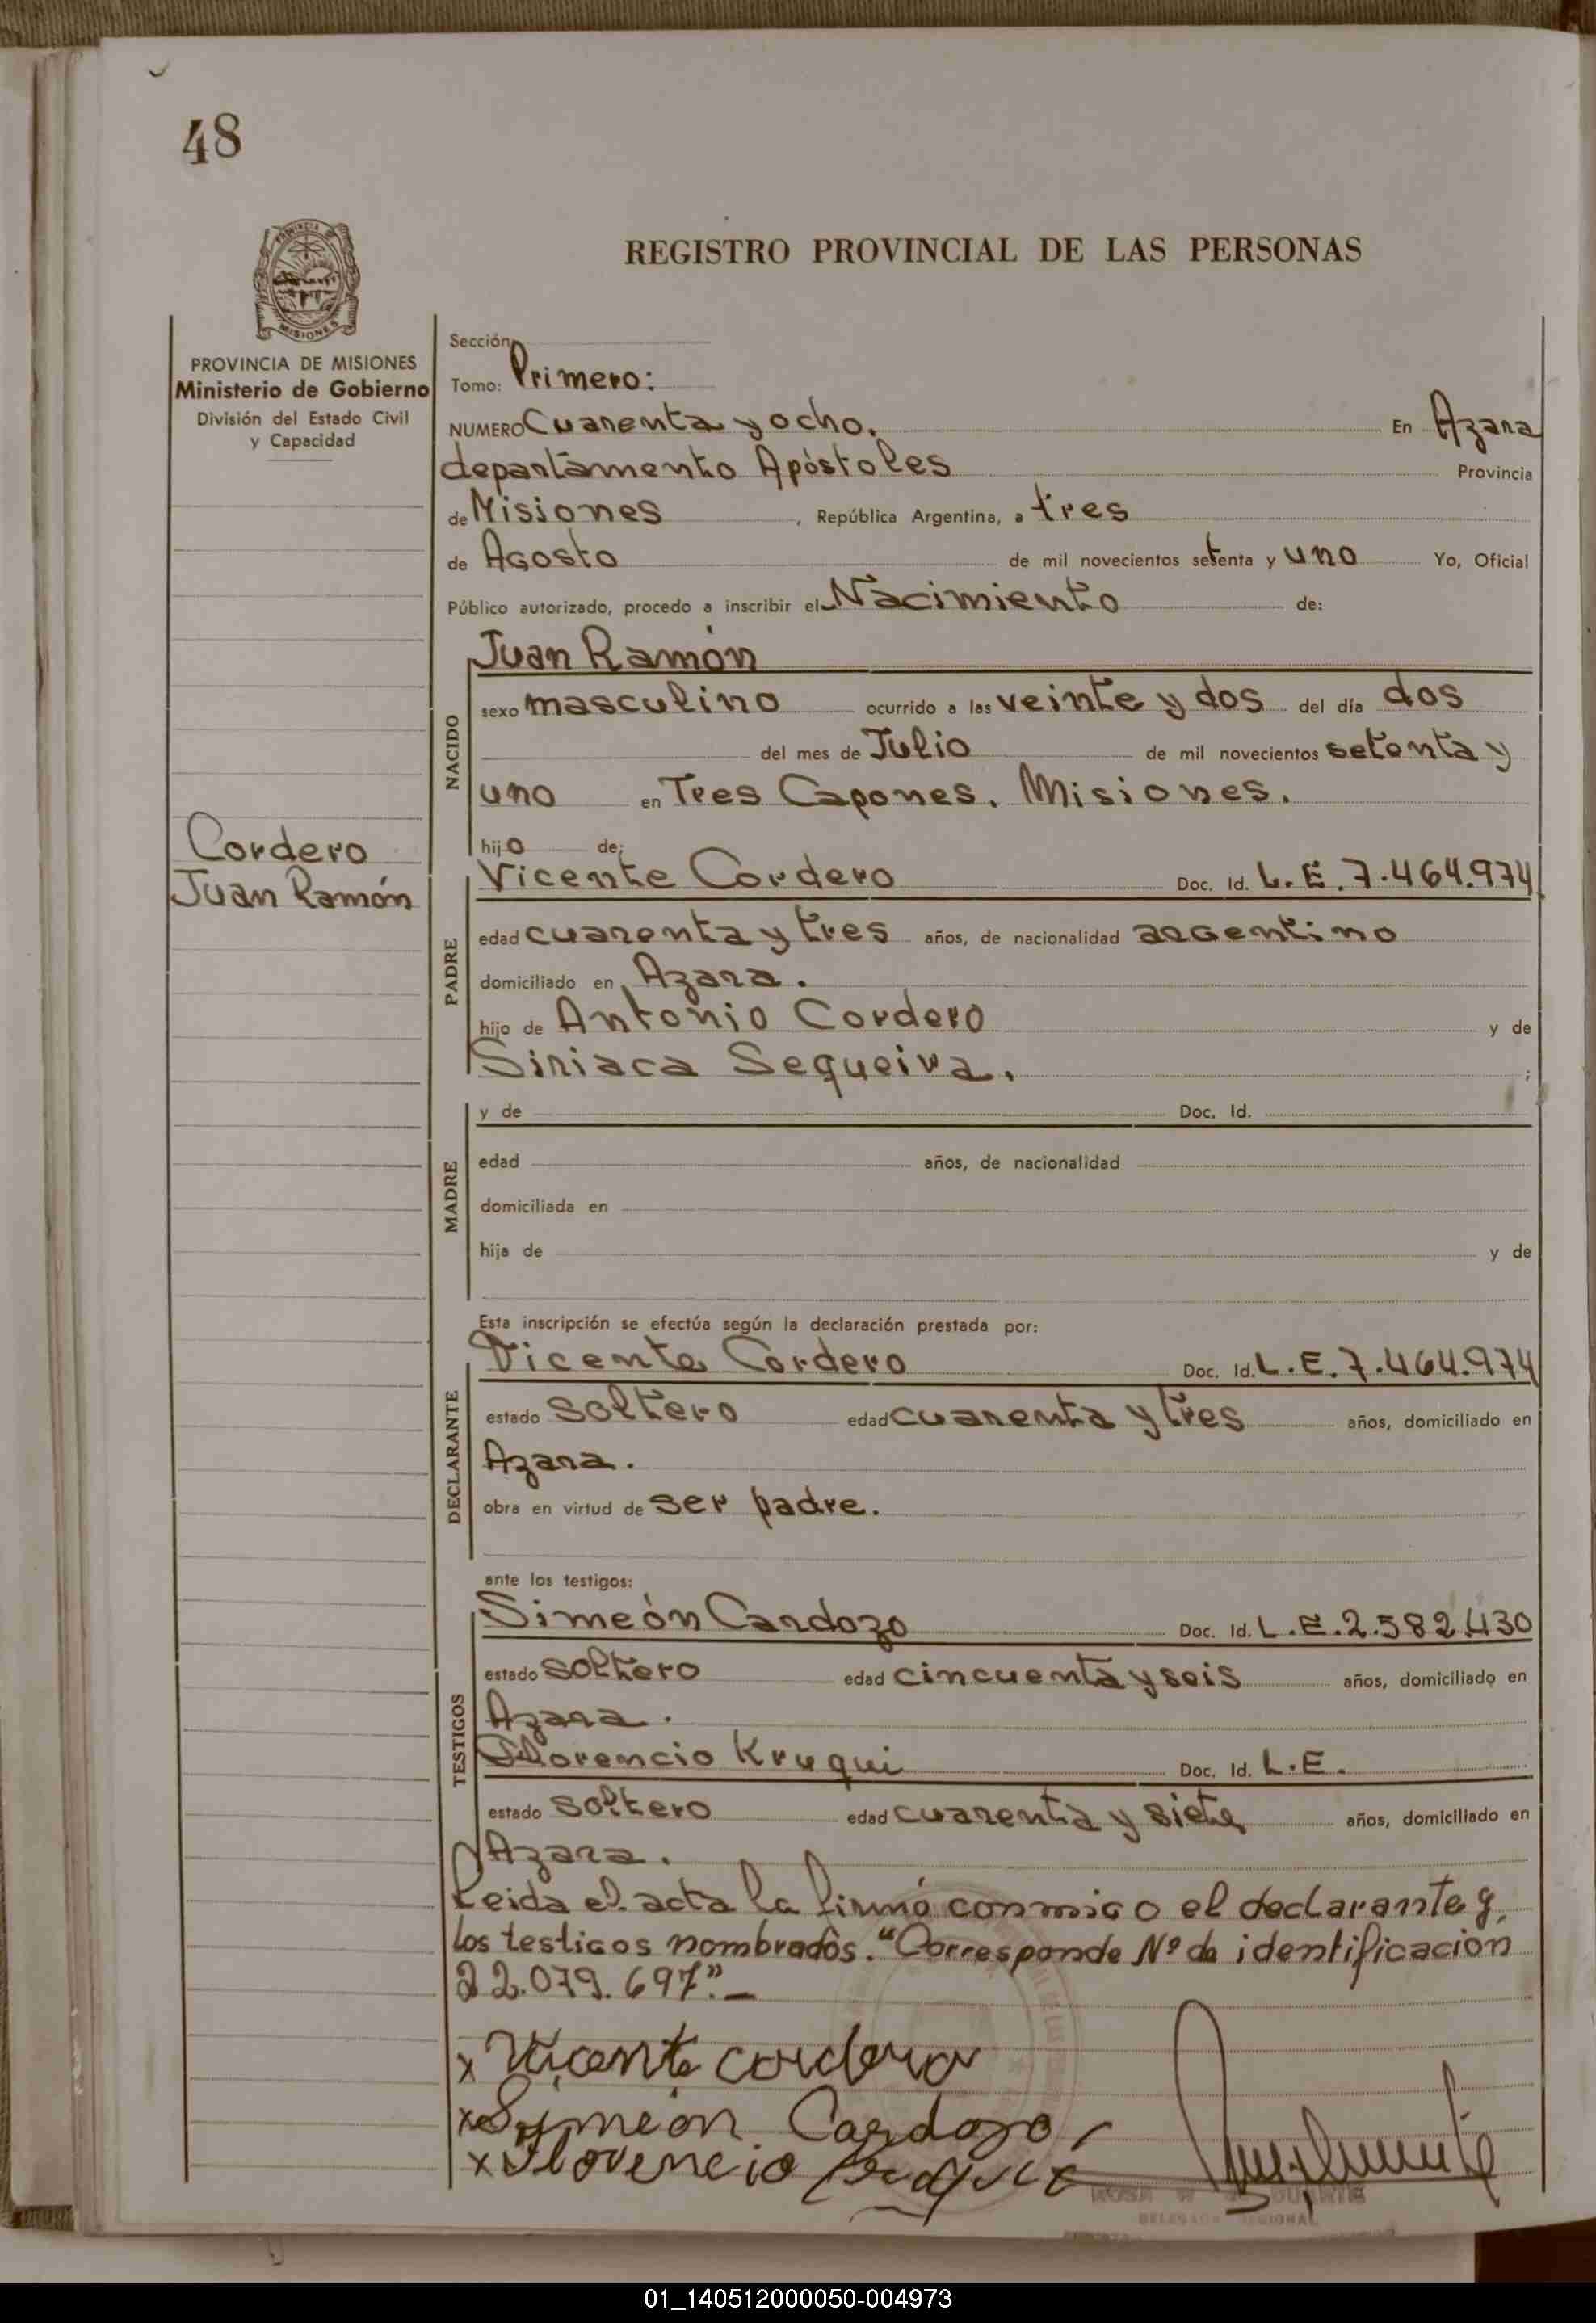 48
PROVINCIA DE MISIONES
Ministerio de Gobierno
División del Estado Civil
y Capacidad
Cordero
Juan Ramón
REGISTRO PROVINCIAL DE LAS PERSONAS
Sección
Tomo: Primero:
NUMERO Cuarenta y ocho. En Azara
departamento Apóstoles Provincia
de Misiones , República Argentina, a tres
de Agosto de mil novecientos setenta y uno Yo, Oficial
Público autorizado, procedo a inscribir el Nacimiento de:
Juan Ramón
NACIDO
sexo masculino ocurrido a las veinte y dos del día dos
del mes de Julio de mil novecientos setenta y
uno en Tres Capones. Misiones.
hijo de:
Vicente Cordero Doc. Id. L.E. 7.464.974
PADRE
edad cuarenta y tres años, de nacionalidad argentino
domiciliado en Azara.
hijo de Antonio Cordero y de
Siriaca Sequeira. ;
y de Doc. Id.
MADRE
edad años, de nacionalidad
domiciliada en
hija de y de
Esta inscripción se efectúa según la declaración prestada por:
Vicente Cordero Doc. Id. L.E. 7.464.974
DECLARANTE
estado soltero edad cuarenta y tres años, domiciliado en
Azara.
obra en virtud de ser padre.
ante los testigos:
Simeón Cardozo Doc. Id. L.E. 2.582.430
TESTIGOS
estado soltero edad cincuenta y seis años, domiciliado en
Azara.
Florencio Kruqui Doc. Id. L.E.
estado soltero edad cuarenta y siete años, domiciliado en
Azara.
Leida el acta la firmó conmigo el declarante y
los testigos nombrados. "Corresponde Nº de identificación
22.079.697".-
x Vicente cordero
x Symeon Cardozo
x Florencio
DELEGADA REGIONAL
01_140512000050-004973